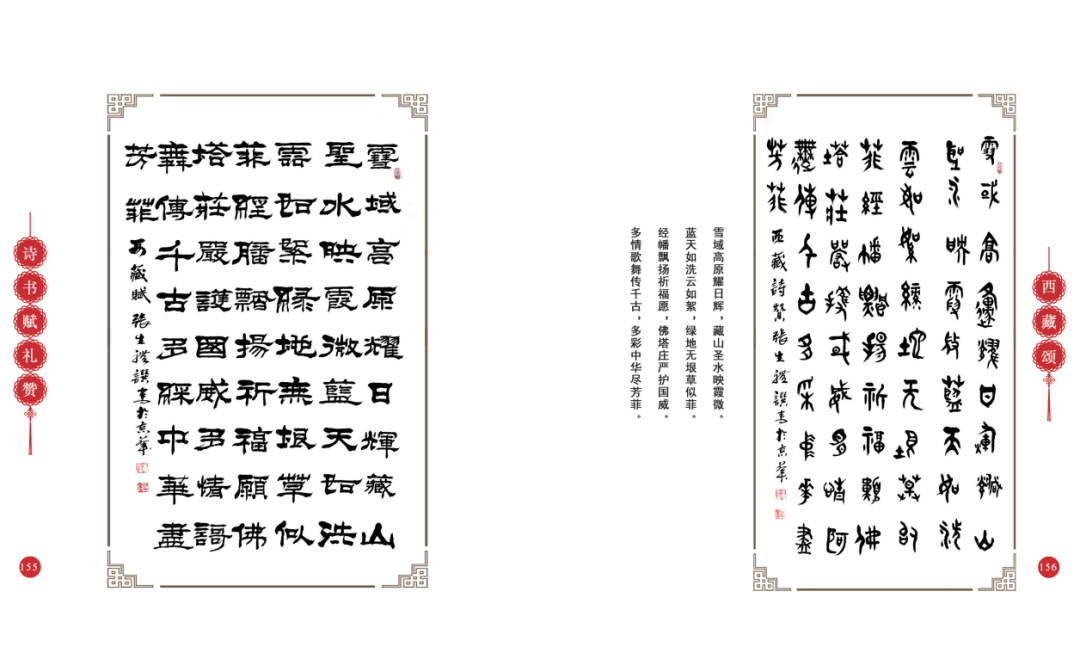 诗书赋礼赞
155
雪域高原耀日輝藏山
聖水映霞微藍天如洗
雲如絮緑地無垠草似
菲經幡飄揚祈福願佛
塔莊嚴護國威多情謌
舞傳千古多綵中華盡
芳菲 西藏賦 張生禮撰書於京華
雪域高原耀日辉，藏山圣水映霞微。
蓝天如洗云如絮，绿地无垠草似菲。
经幡飘扬祈福愿，佛塔庄严护国威。
多情歌舞传千古，多彩中华尽芳菲。
雪或高邍耀日輝藏山
聖水映霞微藍天如洗
雲如絮緑地无垠草似
菲經幡飄揚祈福願佛
塔莊嚴護或威多情
舞傳千古多采中華盡
芳菲 西藏詩贊 張生禮撰書於京華
西藏颂
156